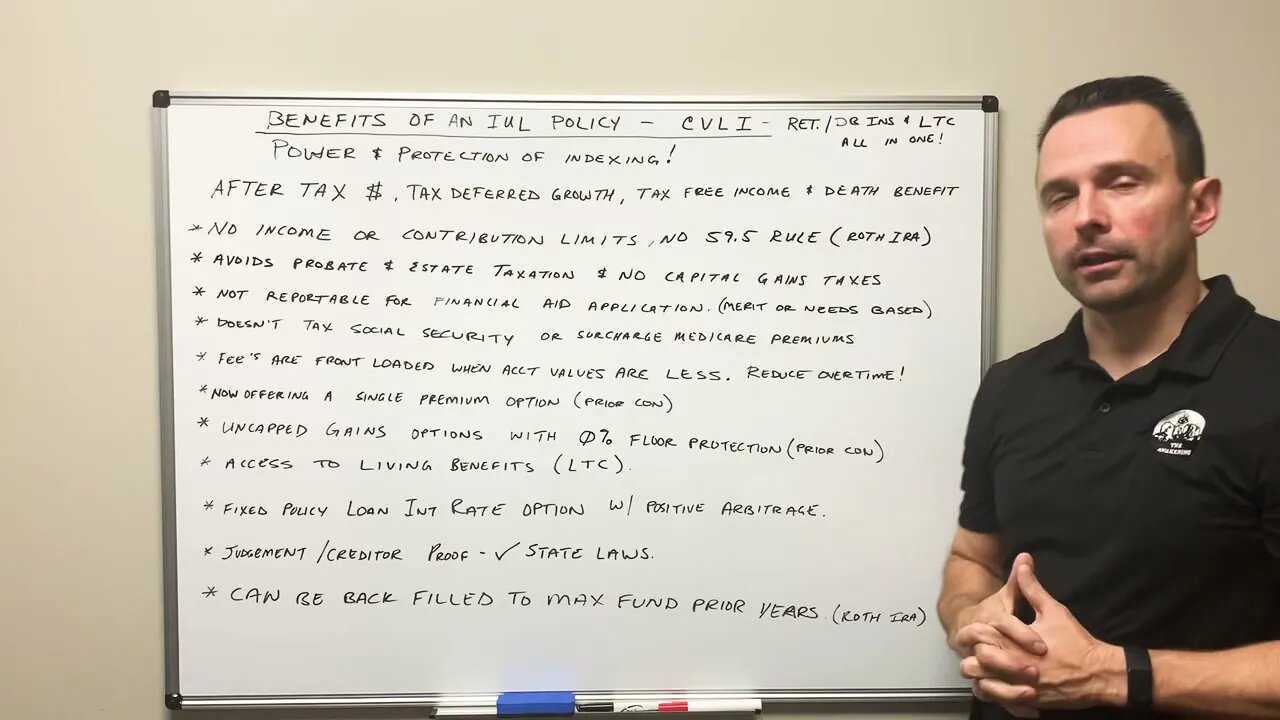 BENEFITS OF AN IUL POLICY - CVLI - RET./DB INS & LTC
ALL IN ONE!
POWER & PROTECTION OF INDEXING!
AFTER TAX $, TAX DEFERRED GROWTH, TAX FREE INCOME & DEATH BENEFIT
* NO INCOME OR CONTRIBUTION LIMITS, NO 59.5 RULE (ROTH IRA)
* AVOIDS PROBATE & ESTATE TAXATION & NO CAPITAL GAINS TAXES
* NOT REPORTABLE FOR FINANCIAL AID APPLICATION. (MERIT OR NEEDS BASED)
* DOESN'T TAX SOCIAL SECURITY OR SURCHARGE MEDICARE PREMIUMS
* FEE'S ARE FRONT LOADED WHEN ACCT VALUES ARE LESS. REDUCE OVERTIME!
* NOW OFFERING A SINGLE PREMIUM OPTION (PRIOR CON)
* UNCAPPED GAINS OPTIONS WITH 0% FLOOR PROTECTION (PRIOR CON)
* ACCESS TO LIVING BENEFITS (LTC).
* FIXED POLICY LOAN INT RATE OPTION W/ POSITIVE ARBITRAGE.
* JUDGEMENT/CREDITOR PROOF - ✓ STATE LAWS.
* CAN BE BACK FILLED TO MAX FUND PRIOR YEARS. (ROTH IRA)
THE
AWAKENING